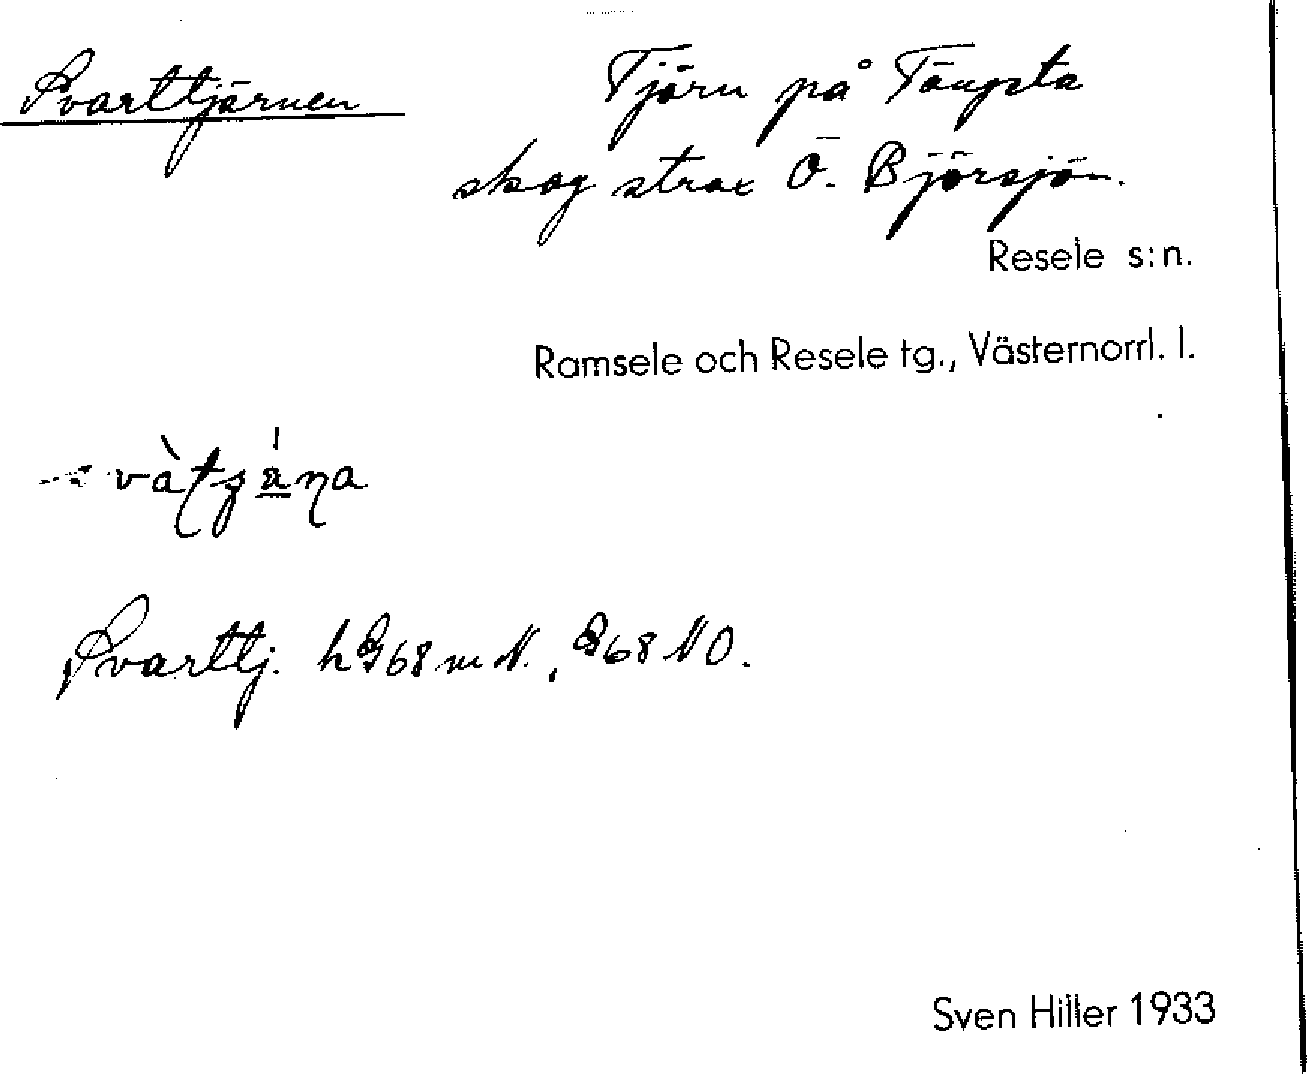 Svarttjärnen
Tjörn på Tängsta
skog strax Ö. Björsjön.
Resele s:n.
Ramsele och Resele tg., Västernorrl. l.
Svarttj. h G68 m N., G68 NO.
Sven Hiller 1933